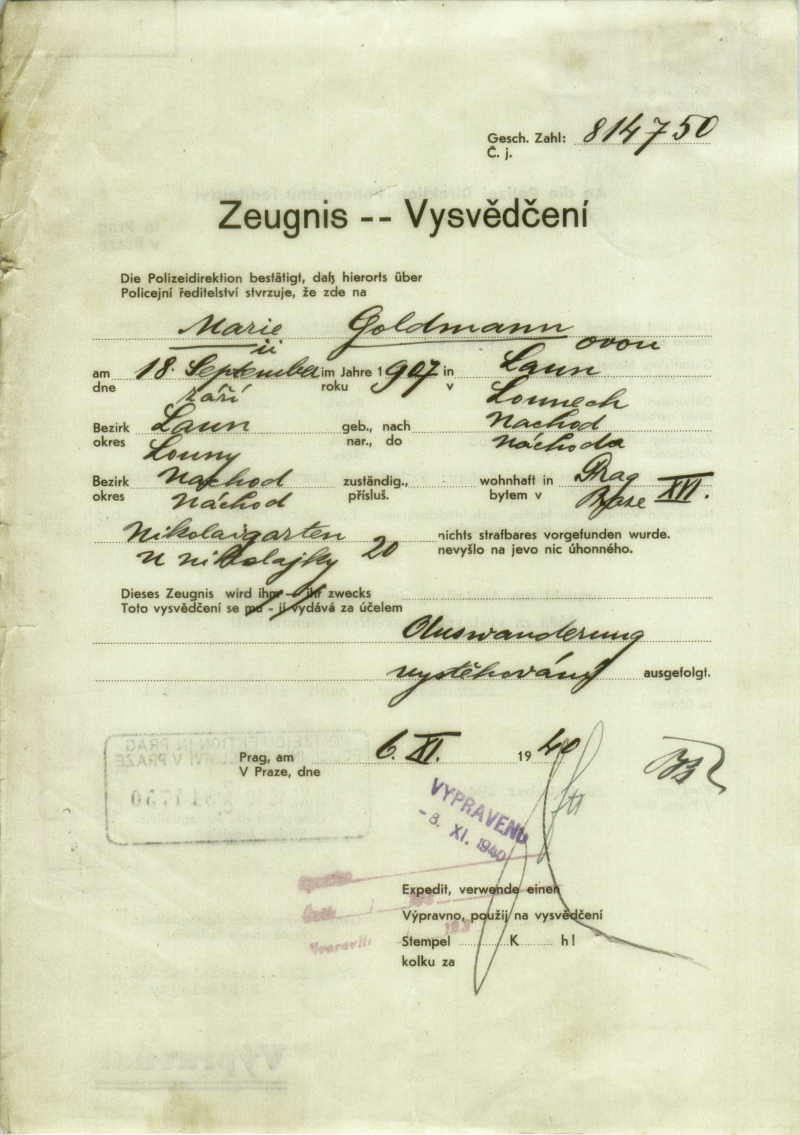 Gesch. Zahl: 814750
Č. j.
Zeugnis -- Vysvědčení
Die Polizeidirektion bestätigt, daß hierorts über
Policejní ředitelství stvrzuje, že zde na
Marie Goldmann
ii ovou
am 18. September im Jahre 1907 in Laun
dne září roku v Lounech
Bezirk Laun geb., nach Nachod
okres Louny nar., do Náchoda
Bezirk Nachod zuständig., wohnhaft in Prag
okres Náchod přísluš. bytem v Praze XVI.
Nikolaigarten nichts strafbares vorgefunden wurde.
U nikolajky 20 nevyšlo na jevo nic úhonného.
Dieses Zeugnis wird ihm - ihr zwecks
Toto vysvědčení se mu - jí vydává za účelem
Auswanderung
vystěhování ausgefolgt.
Prag, am 6. XI. 1940
V Praze, dne
VYPRAVENO
-8. XI. 1940
Expedit, verwende einen
Výpravno, použij na vysvědčení
Stempel K hl
kolku za